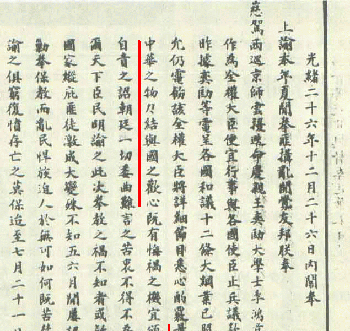 光緒二十六年十二月二十六日內閣奉
上諭本年夏間拳匪搆亂開釁友邦朕奉
慈駕西巡京師雲擾迭命慶親王奕劻大學士李鴻
作為全權大臣便宜行事與各國使臣止兵議
昨據奕劻等電呈各國和議十二條大綱業已照
允仍電飭該全權大臣將詳細節目悉心酌核量
中華之物力結與國之歡心既有悔禍之機宜頒
自責之詔朝廷一切委曲難言之苦衷不得不
爾天下臣民明諭之此次拳教之禍不知者咸
國家縱庇匪徒激成大變殊不知五六月間屢
勦拳保教而亂民悍族迫人於無可如何既苦
諭之俱窮復憤存亡之莫保迨至七月二十一